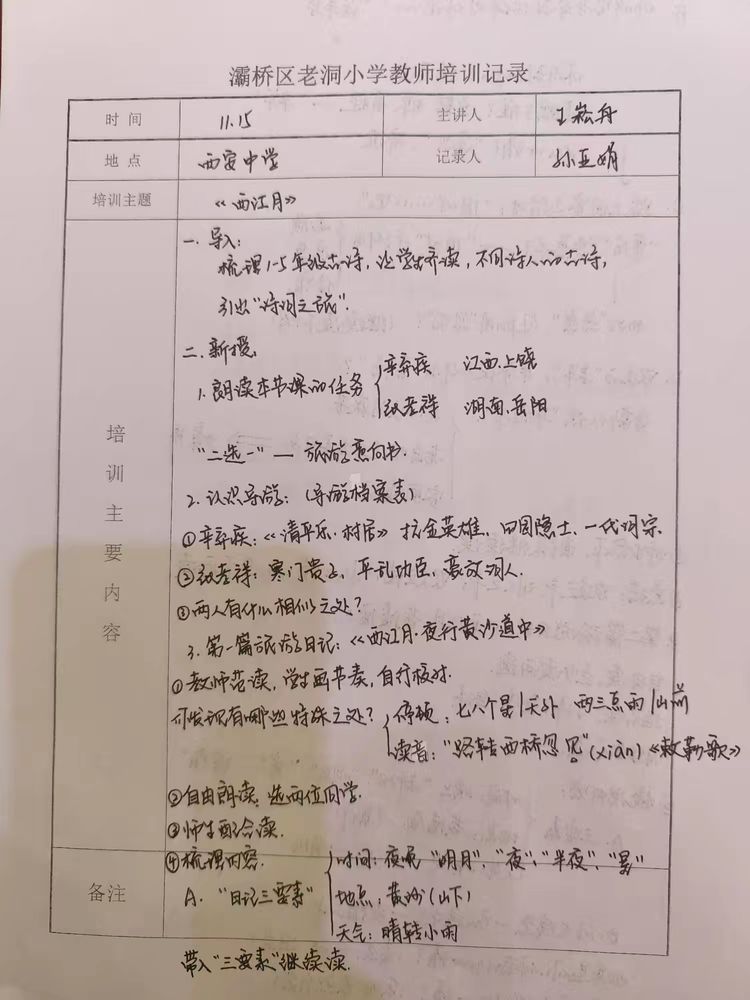 灞桥区老洞小学教师培训记录
时 间 11.15 主讲人 王崧舟
地 点 西安中学 记录人 孙亚娟
培训主题 《西江月》
培训主要内容
一.导入:
梳理1-5年级古诗,让学生齐读,不同诗人的古诗,
引出“诗词之旅”.
二.新授:
1.朗读本节课的任务 { 辛弃疾 江西.上饶
张孝祥 湖南.岳阳
“二选一” — 旅游意向书.
2.认识导游:(导游档案表)
①辛弃疾:《清平乐·村居》 抗金英雄、田园隐士、一代词宗.
②张孝祥:寒门贵子、平乱功臣、豪放词人.
③两人有什么相似之处?
3.第一篇旅游日记:《西江月·夜行黄沙道中》
①教师范读,学生画节奏,自行核对.
你发现有哪些特殊之处? { 停顿:七八个星|天外 两三点雨|山前
读音:“路转西桥忽见”(xiàn)《敕勒歌》
②自由朗读,选两位同学.
③师生配合读.
④梳理内容.
备注
A.“日记三要素” { 时间:夜晚 “明月”、“夜”、“半夜”、“星”
地点:黄沙(山下)
天气:晴转小雨
带入“三要素”继续读.